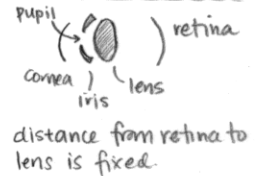 pupil
retina
cornea
iris
lens
distance from retina to
lens is fixed.